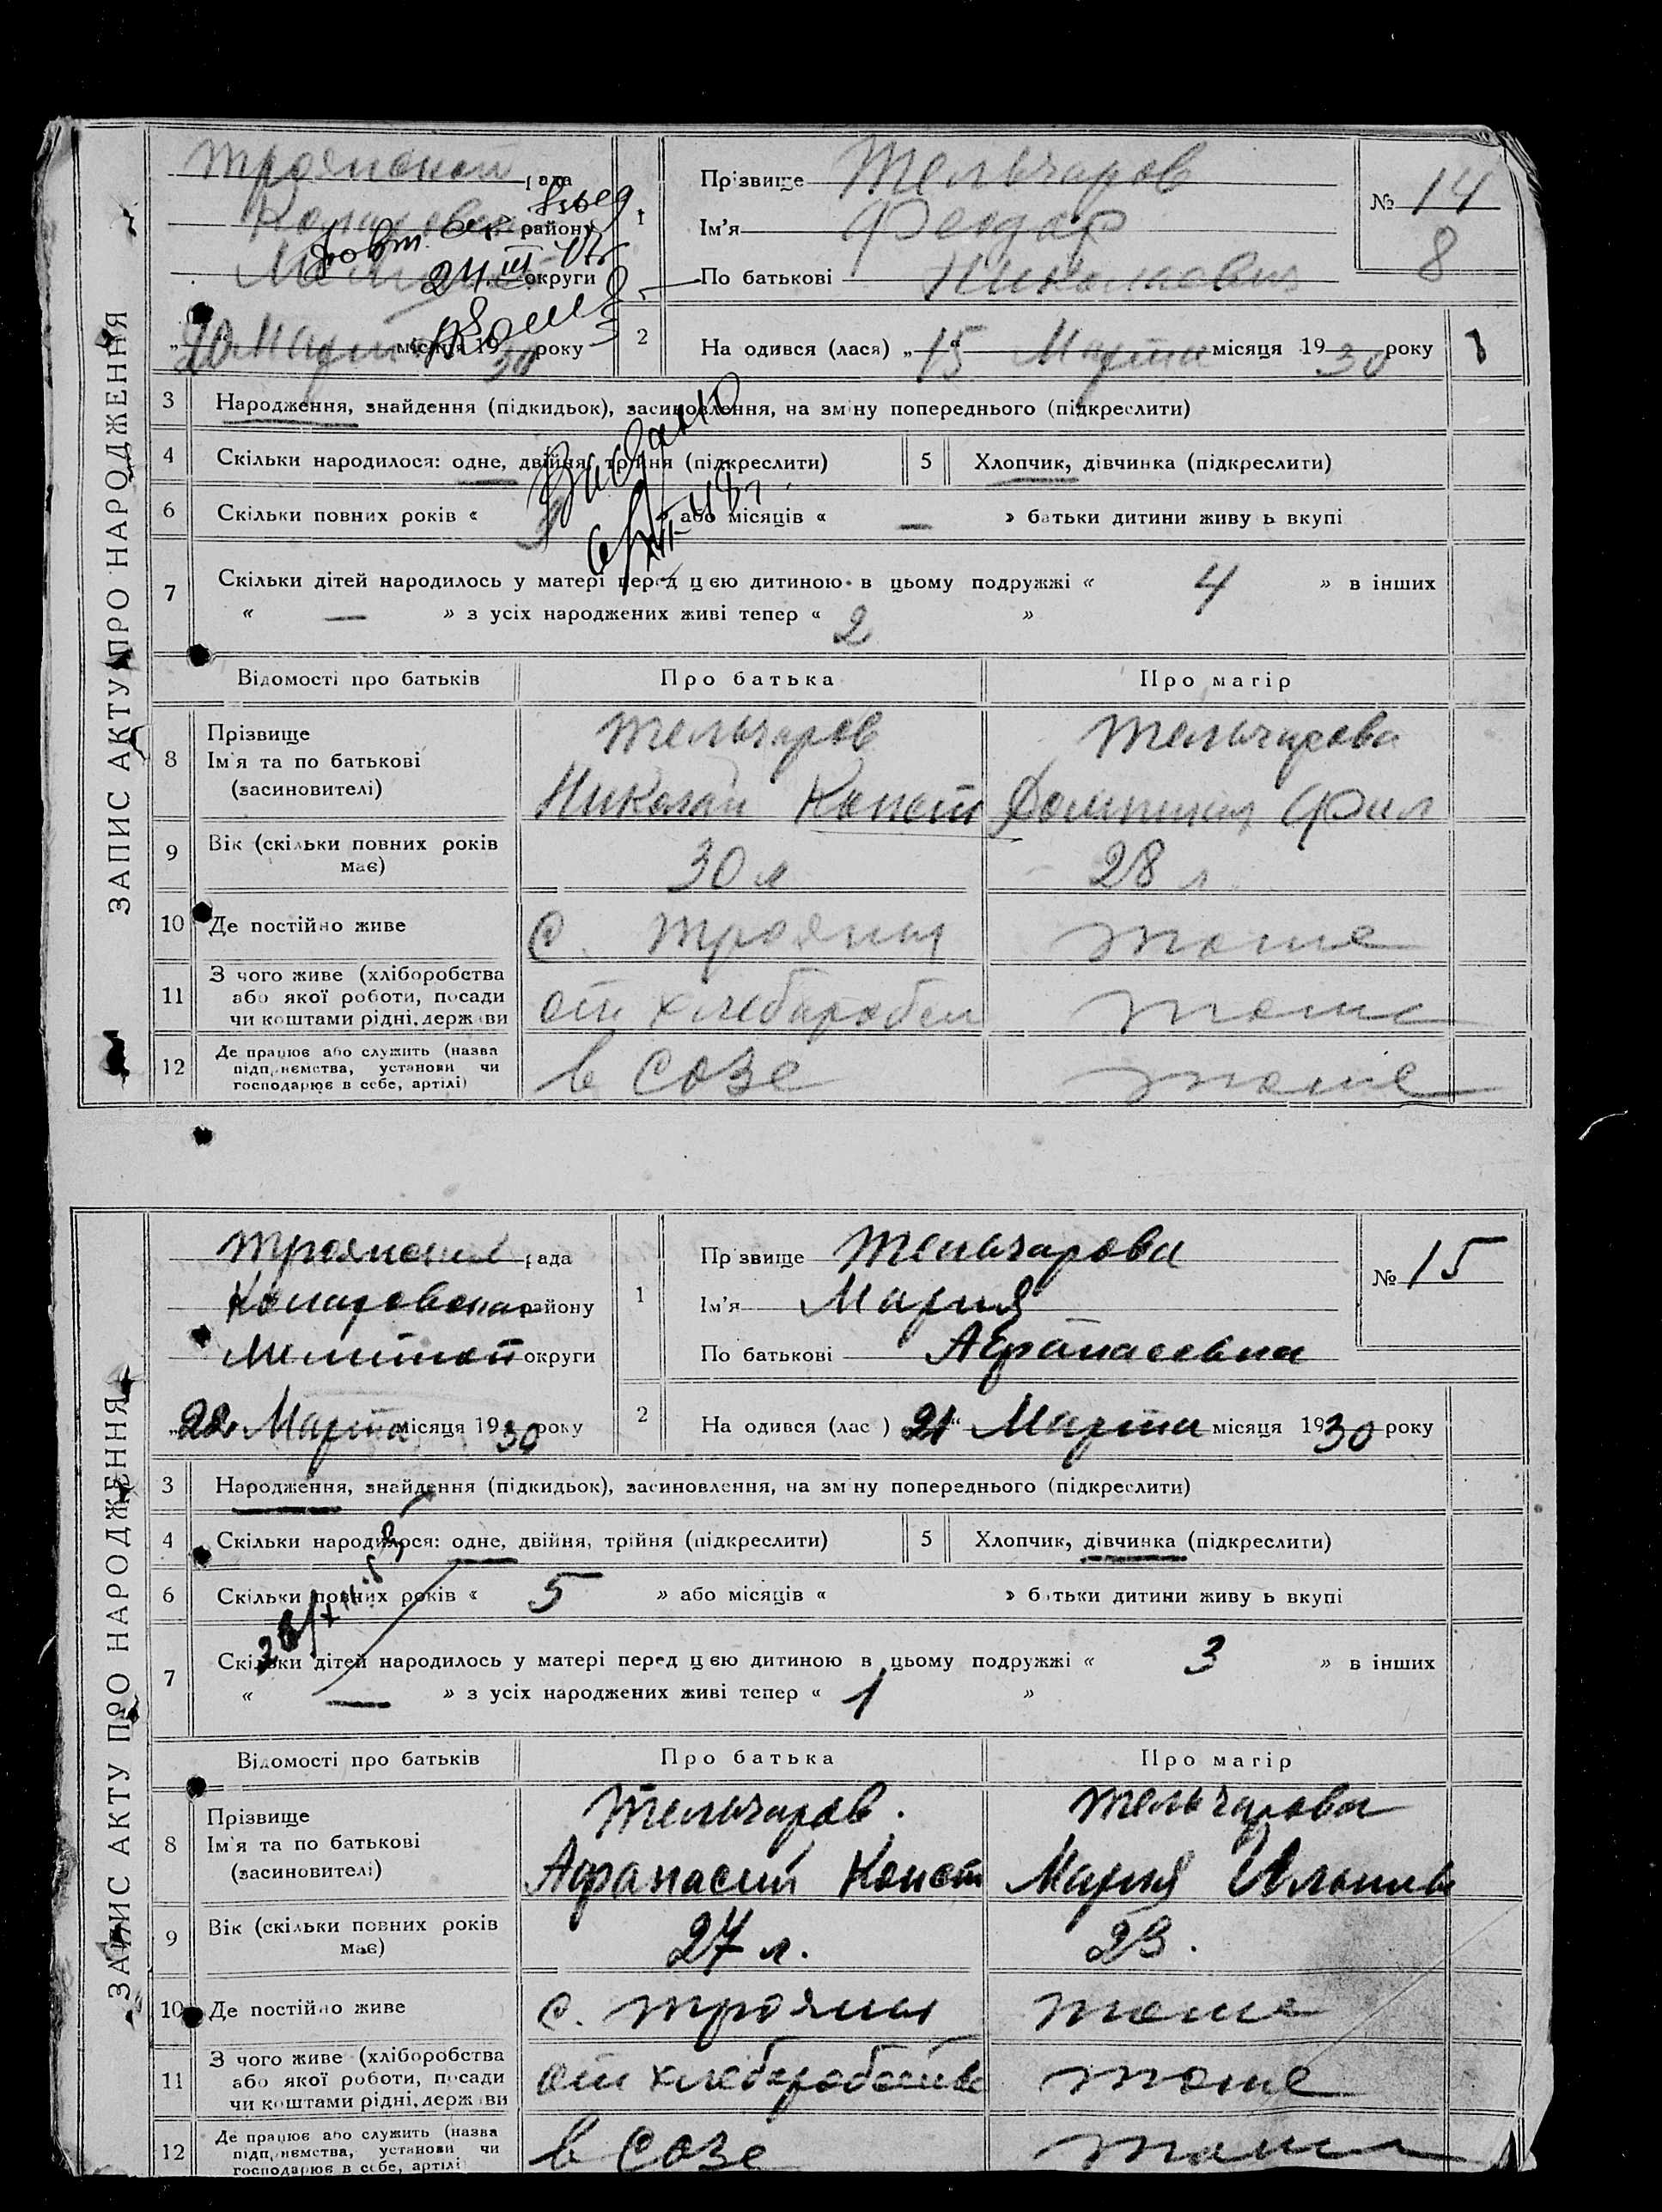 ЗАПИС АКТУ ПРО НАРОДЖЕННЯ
Троянской рада
району
округи
"20" Марта місяця 1930 року
24 III
1 Прізвище Тельчаров
Ім'я Феодор
По батькові Николаевич
№ 14
8
2 На одився (лася) „15" Марта місяця 1930 року
3 Народження, знайдення (підкидьок), засиновлення, на зміну попереднього (підкреслити)
4 Скільки народилося: одне, двійня, трійня (підкреслити)
5 Хлопчик, дівчинка (підкреслити)
6 Скільки повних років « або місяців « — » батьки дитини живу ь вкупі
7 Скільки дітей народилось у матері перед цією дитиною в цьому подружжі « 4 » в інших
« — » з усіх народжених живі тепер « 2 »
Відомості про батьків Про батька Про матір
8 Прізвище Тельчаров Тельчарова
Ім'я та по батькові
(засиновителі) Николай Конст Фил
9 Вік (скільки повних років має) 30 л 28 л
10 Де постійно живе с. Трояны тоже
11 З чого живе (хліборобства
або якої роботи, посади
чи коштами рідні, держави от хлебороб тоже
12 Де працює або служить (назва
підприємства, установи чи
господарює в себе, артілі) в Созе тоже
ЗАПИС АКТУ ПРО НАРОДЖЕННЯ
Троянская рада
району
Мелитоп округи
„22" Марта місяця 1930 року
1 Пр звище Тельчарова
Ім'я Мария
По батькові Афанасевна
№ 15
2 На одився (лас ) 21" Марта місяця 1930 року
3 Народження, знайдення (підкидьок), засиновлення, на зм ну попереднього (підкреслити)
4 Скільки народилося: одне, двійня, трійня (підкреслити)
5 Хлопчик, дівчинка (підкреслити)
6 Скільки повних років « 5 » або місяців « » батьки дитини живу ь вкупі
7 Скільки дітей народилось у матері перед цією дитиною в цьому подружжі « 3 » в інших
« — » з усіх народжених живі тепер « 1 »
Відомості про батьків Про батька Про матір
8 Прізвище Тельчаров. Тельчарова
Ім'я та по батькові
(засиновителі) Афанасий Конст Мария
9 Вік (скільки повних років має) 27 л. 23.
10 Де постійно живе с. Трояны тоже
11 З чого живе (хліборобства
або якої роботи, посади
чи коштами рідні, держави от хлеборобства тоже
12 Де працює або служить (назва
підприємства, установи чи
господарює в себе, артілі в Созе тоже